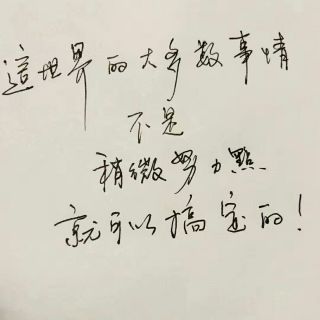 這世界的大多數事情
不是
稍微努力點
就可以搞定的！